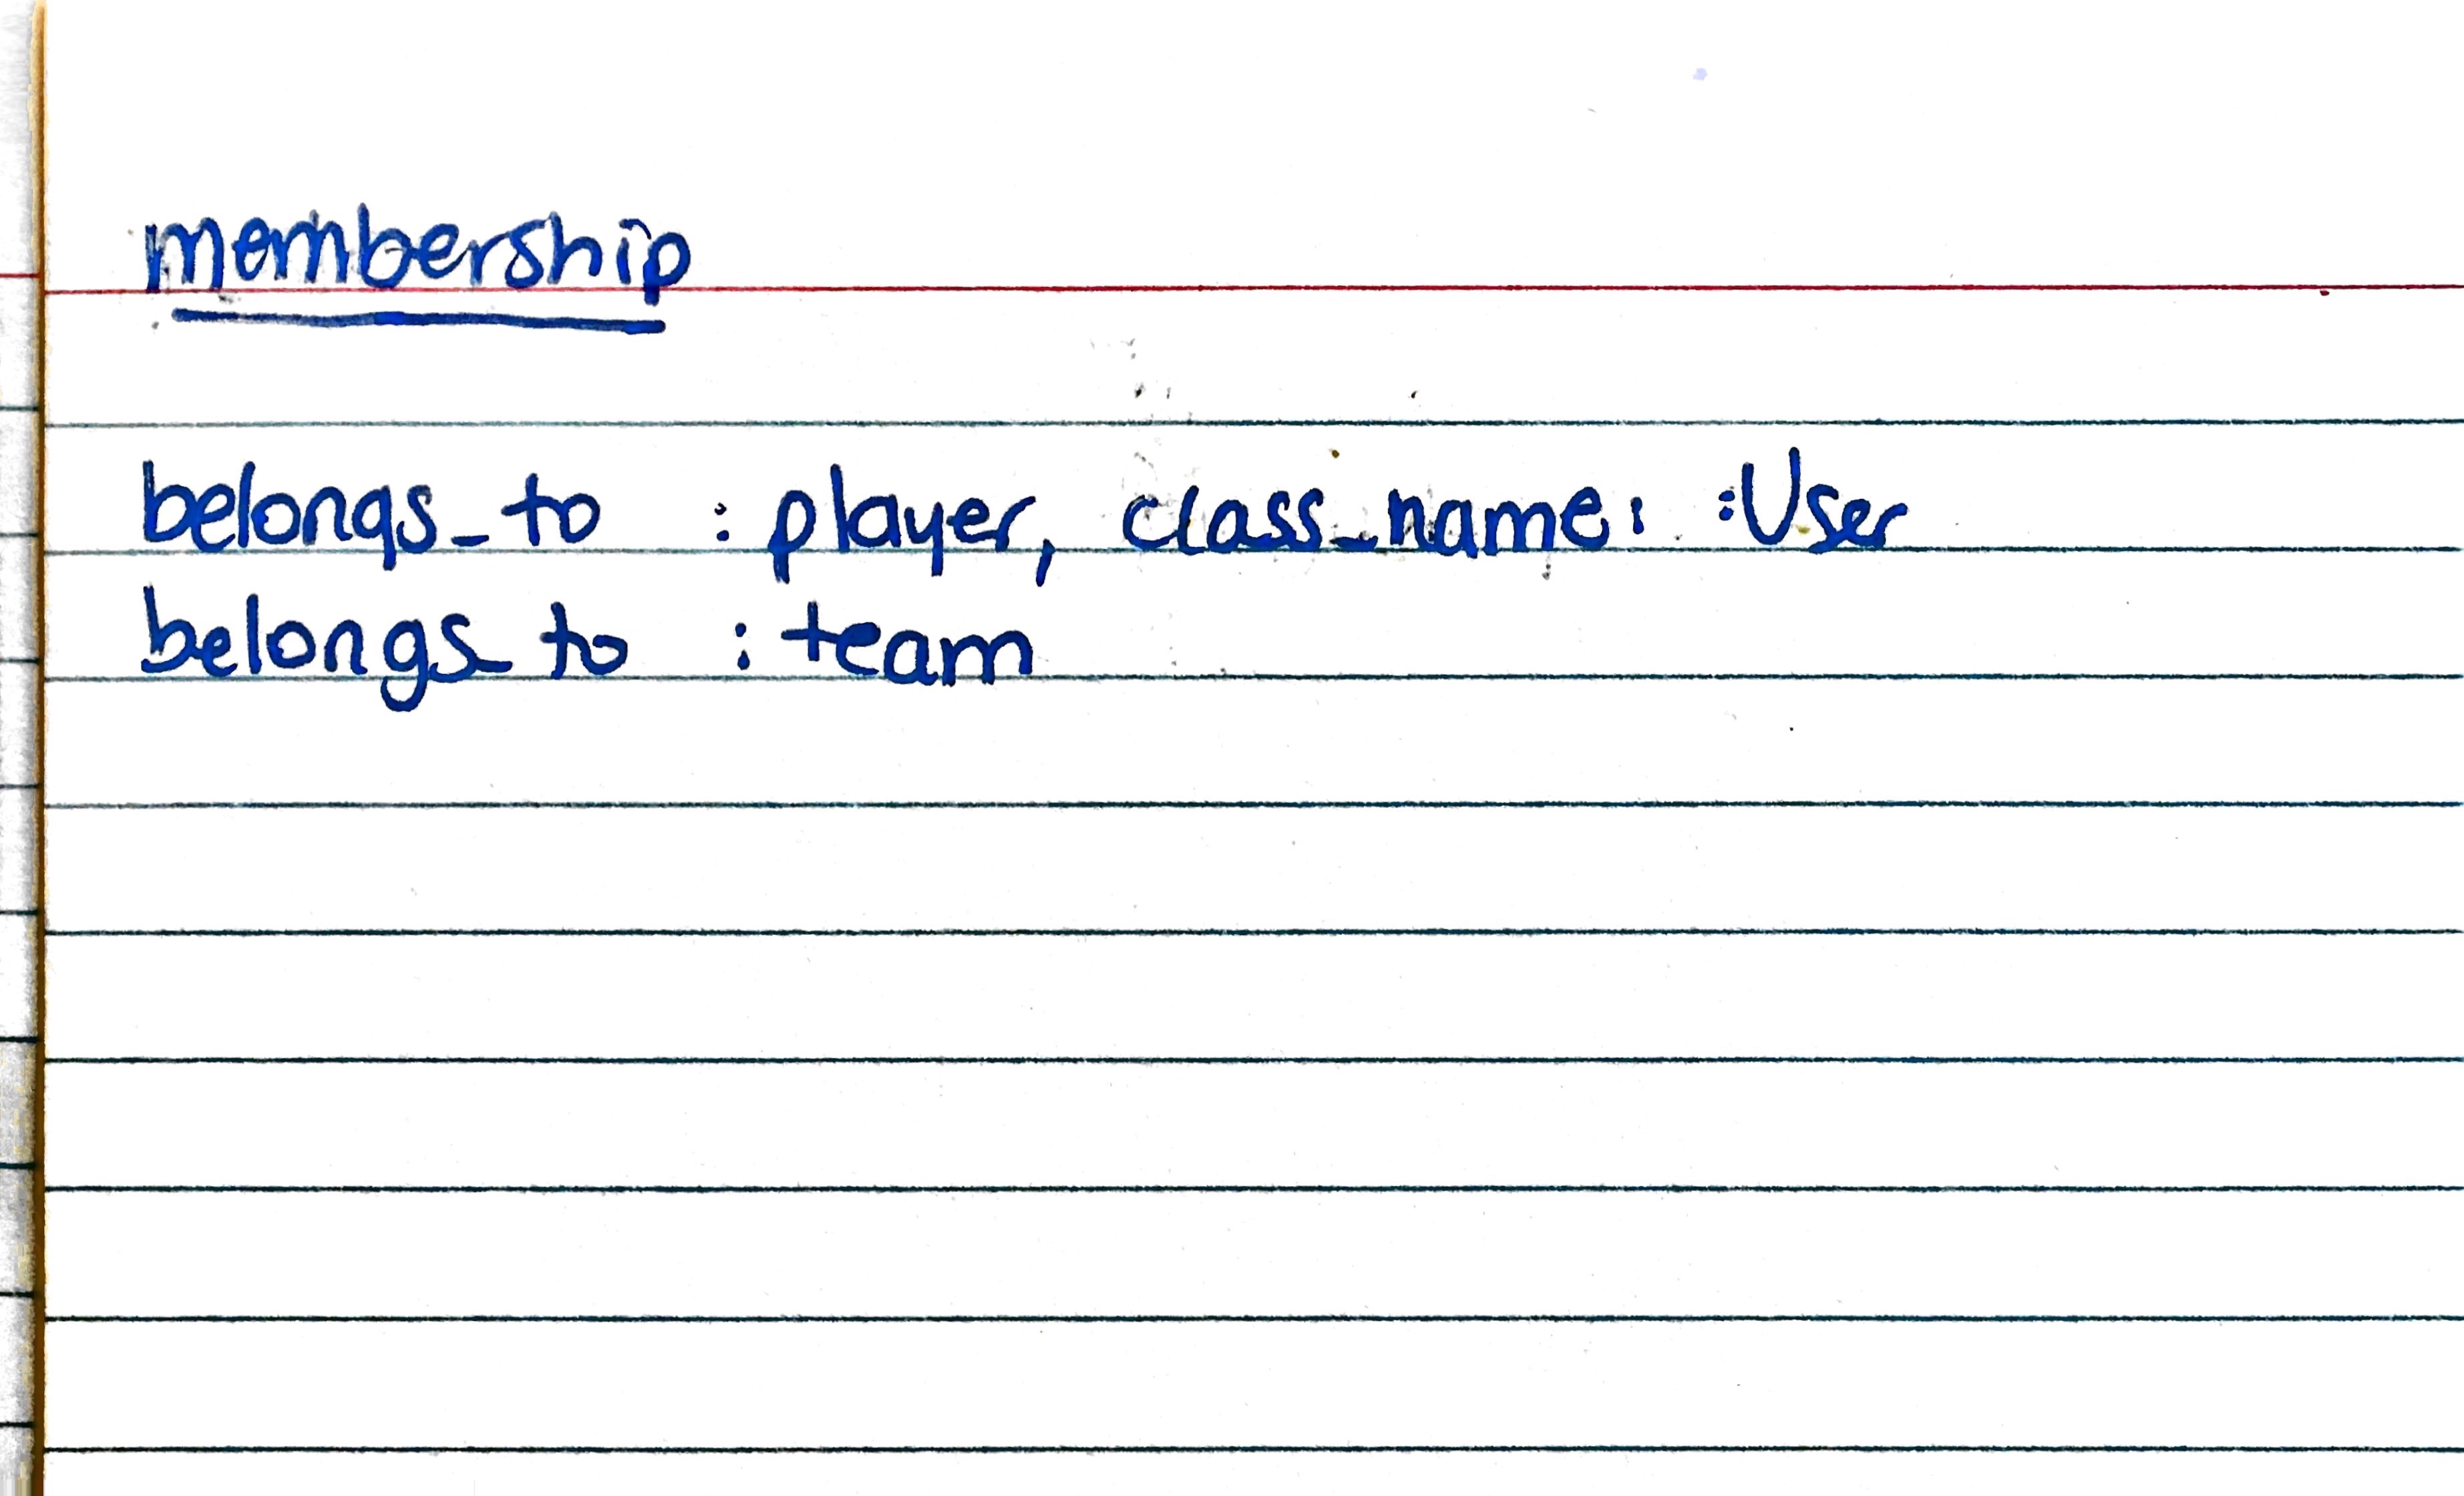 membership
belongs_to :player, class_name: :User
belongs_to :team